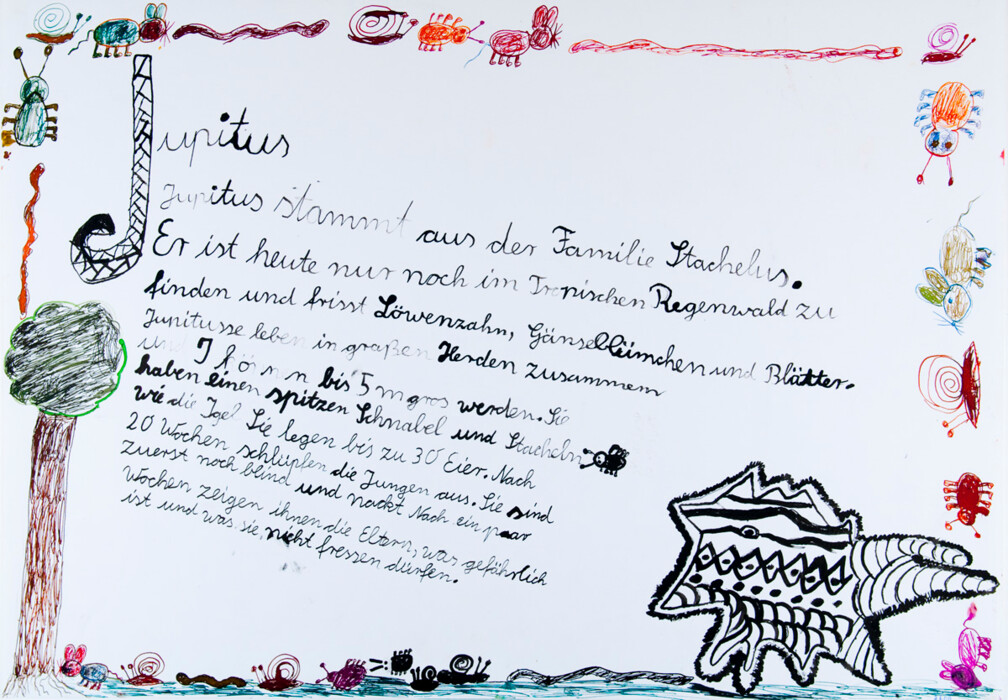 Jupitus
Jupitus stammt aus der Familie Stachelus.
Er ist heute nur noch im Tropischen Regenwald zu
finden und frisst Löwenzahn, Gänsellümchen und Blätter.
Jupitusse leben in graßen Herden zusammem
und könnn bis 5 m gros werden. Sie
haben einen spitzen Schnabel und Stacheln
wie die Igel Sie legen bis zu 30 Eier. Nach
20 Wochen schlüpfen die Jungen aus. Sie sind
zuerst noch blind und nackt Nach ein paar
Wochen zeigen ihnen die Eltern, was gefährlich
ist und was sie nicht fressen dürfen.